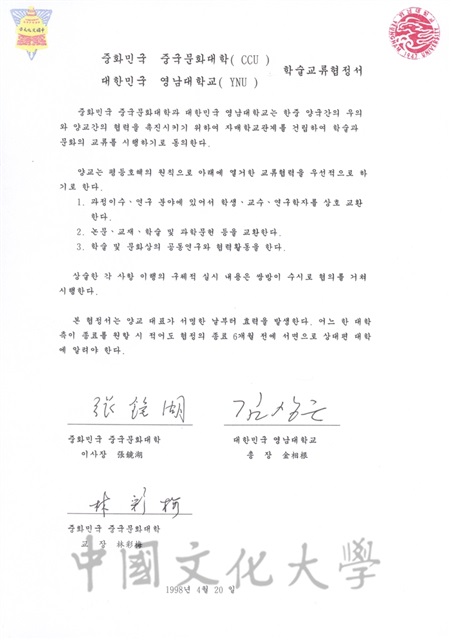 중화민국 중국문화대학( CCU )
대한민국 영남대학교( YNU )
학술교류협정서
중화민국 중국문화대학과 대한민국 영남대학교는 한중 양국간의 우의
와 양교간의 협력을 촉진시키기 위하여 자매학교관계를 건립하여 학술과
문화의 교류를 시행하기로 동의한다.
양교는 평등호혜의 원칙으로 아래에 열거한 교류협력을 우선적으로 하
기로 한다.
1. 과정이수·연구 분야에 있어서 학생·교수·연구학자를 상호 교환
한다.
2. 논문·교재·학술 및 과학문헌 등을 교환한다.
3. 학술 및 문화상의 공동연구와 협력활동을 한다.
상술한 각 사항 이행의 구체적 실시 내용은 쌍방이 수시로 협의를 거쳐
시행한다.
본 협정서는 양교 대표가 서명한 날부터 효력을 발생한다. 어느 한 대학
측이 종료를 원할 시 적어도 협정의 종료 6개월 전에 서면으로 상대편 대학
에 알려야 한다.
張鏡湖
김상근
중화민국 중국문화대학
대한민국 영남대학교
이사장 張鏡湖
총 장 金相根
林彩梅
중화민국 중국문화대학
교 장 林彩梅
中國文化大學
1998년 4월 20 일